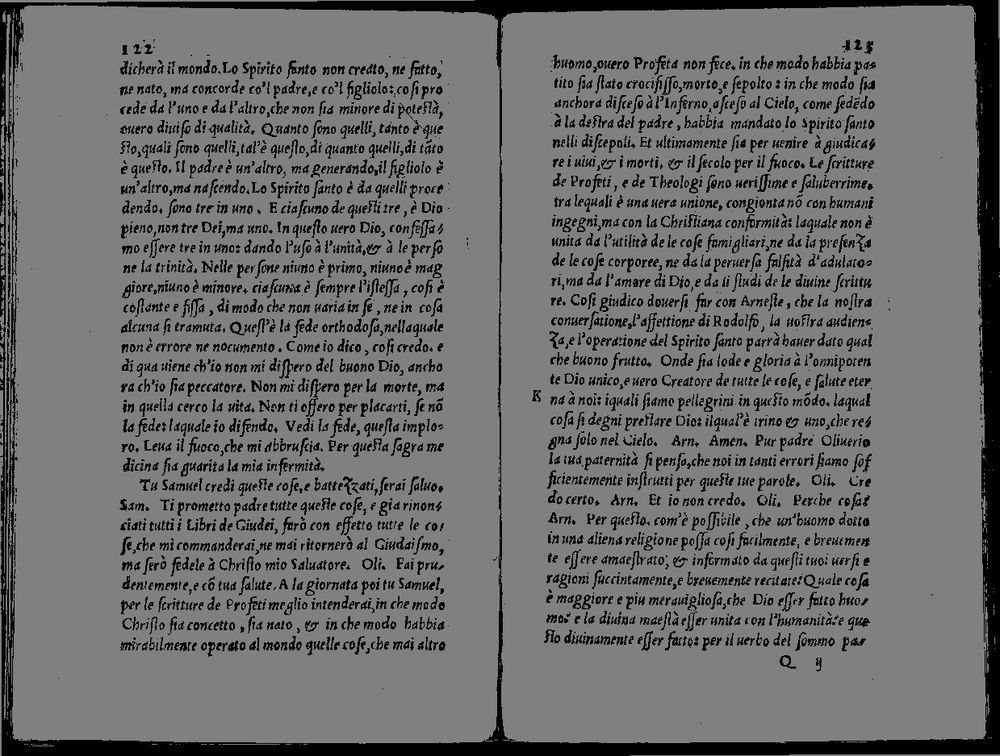 122
dicherà il mondo. Lo Spirito ſanto non creato, ne fatto,
ne nato, ma concorde co'l padre, e co'l figliolo: coſi pro
cede da l'uno e da l'altro, che non ſia minore di poteſtà,
ouero diuiſo di qualità. Quanto ſono quelli, tanto è que
ſto, quali ſono quelli, tal'è queſto, di quanto quelli, di tãto
è queſto. Il padre è un'altro, ma generando, il figliolo è
un'altro, ma naſcendo. Lo Spirito ſanto è da quelli proce
dendo. ſono tre in uno. E ciaſcuno de queſti tre, è Dio
pieno, non tre Dei, ma uno. In queſto uero Dio, confeſſa⸗
mo eſſere tre in uno: dando l'uſo à l'unità, & à le perſo
ne la trinità. Nelle perſone niuno è primo, niuno è mag
giore, niuno è minore. ciaſcuna è ſempre l'iſteſſa, coſi è
coſtante e fiſſa, di modo che non uaria in ſe, ne in coſa
alcuna ſi tramuta. Queſt'è la fede orthodoſa, nellaquale
non è errore ne nocumento. Come io dico, coſi credo. e
di qua uiene ch'io non mi diſpero del buono Dio, ancho
ra ch'io ſia peccatore. Non mi diſpero per la morte, ma
in quella cerco la uita. Non ti offero per placarti, ſe nõ
la fede: laquale io difendo. Vedi la fede, queſta implo⸗
ro. Leua il fuoco, che mi abbruſcia. Per queſta ſagra me
dicina ſia guarita la mia infermità.
Tu Samuel credi queſte coſe, e battezzati, ſerai ſaluo.
Sam. Ti prometto padre tutte queſte coſe, e gia rinon⸗
ciati tutti i Libri de Giudei, farò con effetto tutte le co⸗
ſe, che mi commanderai, ne mai ritornerò al Giudaiſmo,
ma ſerò fedele à Chriſto mio Saluatore. Oli. Fai pru⸗
dentemente, e cõ tua ſalute. A la giornata poi tu Samuel,
per le ſcritture de Profeti meglio intenderai, in che modo
Chriſto ſia concetto, ſia nato, & in che modo habbia
mirabilmente operato al mondo quelle coſe, che mai altro
123
huomo, ouero Profeta non fece. in che modo habbia pa⸗
tito ſia ſtato crocifiſſo, morto, e ſepolto: in che modo ſia
anchora diſceſo à l'Inferno, aſceſo al Cielo, come ſedẽdo
à la deſtra del padre, habbia mandato lo Spirito ſanto
nelli diſcepoli. Et ultimamente ſia per uenire à giudica⸗
re i uiui, & i morti, & il ſecolo per il fuoco. Le ſcritture
de Profeti, e de Theologi ſono ueriſſime e ſaluberrime.
tra lequali è una uera unione, congionta nõ con humani
ingegni, ma con la Chriſtiana conformità: laquale non è
unita da l'utilità de le coſe famigliari, ne da la preſenza
de le coſe corporee, ne da la peruerſa falſità d'adulato⸗
ri, ma da l'amore di Dio, e da li ſtudi de le diuine ſcrittu
re. Coſi giudico douerſi far con Arneſte, che la noſtra
conuerſatione, l'affettione di Rodolfo, la uoſtra audien⸗
za, e l'operatione del Spirito ſanto parrà hauer dato qual
che buono frutto. Onde ſia lode e gloria à l'onnipoten
te Dio unico, e uero Creatore de tutte le coſe, e ſalute eter
K
na à noi: iquali ſiamo pellegrini in queſto mõdo. laqual
coſa ſi degni preſtare Dio: ilqual'è trino & uno, che re⸗
gna ſolo nel Cielo. Arn. Amen. Pur padre Oliuerio
la tua paternità ſi penſa, che noi in tanti errori ſiamo ſof
ficientemente inſtrutti per queſte tue parole. Oli. Cre
do certo. Arn. Et io non credo. Oli. Perche coſa?
Arn. Per queſto. com'è poſſibile, che un'huomo dotto
in una aliena religione poſſa coſi facilmente, e breuemen
te eſſere amaeſtrato, & informato da queſti tuoi uerſi e
ragioni ſuccintamente, e breuemente recitate? Quale coſa
è maggiore e piu merauiglioſa, che Dio eſſer fatto huo⸗
mo? e la diuina maeſtà eſſer unita con l'humanità? e que
ſto diuinamente eſſer fatto: per il uerbo del ſommo pa⸗
Q ij